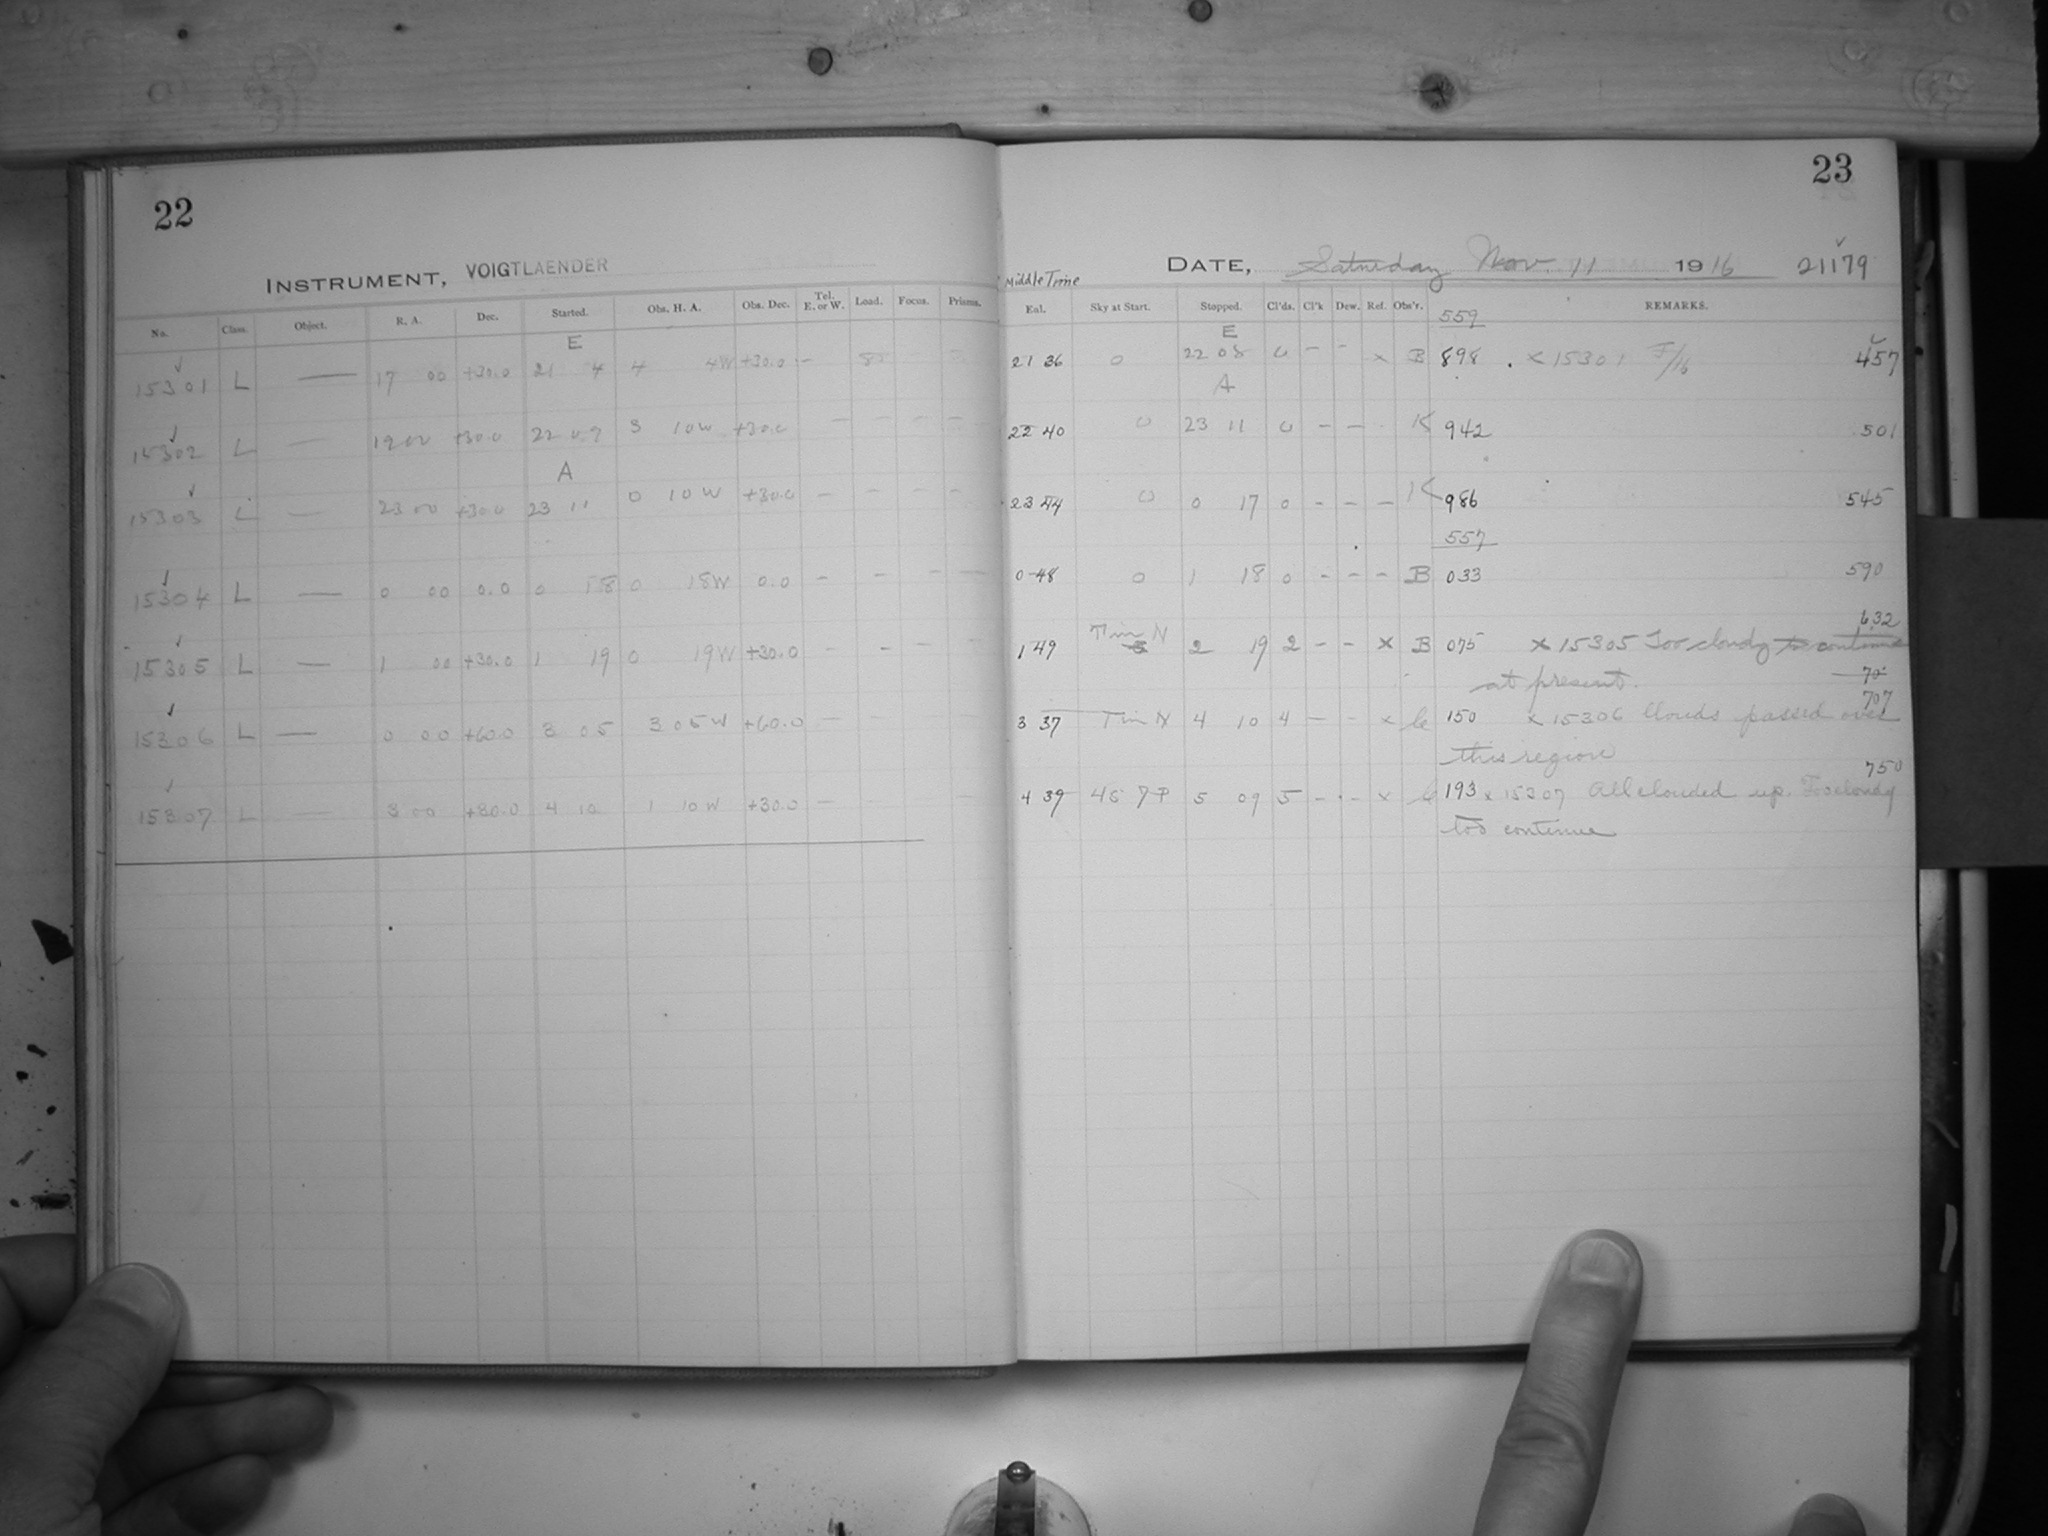 22
INSTRUMENT, VOIGTLAENDER
No. Class. Object. R. A. Dec. Started. Obs. H. A. Obs. Dec. Tel. E. or W. Load. Focus. Prisms.
E
15301 L — 17 00 +30.0 21 4 4 4W +30.0 —
15302 L — 19 00 +30.0 22 09 3 10W +30.0 — — — —
A
15303 L — 23 00 +30.0 23 11 0 10W +30.0 — — — —
15304 L — 0 00 0.0 0 18 0 18W 0.0 — — — —
15305 L — 1 00 +30.0 1 19 0 19W +30.0 — — — —
15306 L — 0 00 +60.0 3 05 3 05W +60.0 — — — —
15307 L — 3 00 +30.0 4 10 1 10W +30.0 — — —
23
DATE, Saturday Nov. 11 1916 21179
Middle Time
Eal. Sky at Start. Stopped. Cl'ds. Cl'k Dew. Ref. Obs'r. REMARKS.
559
E
21 36 0 22 08 0 — — x B 898 . x 15301 F/16 457
A
22 40 0 23 11 0 — — K 942 501
23 44 0 0 17 0 — — — K 986 545
557
0 48 0 1 18 0 — — — B 033 590
632
1 49 N 2 19 2 — — x B 075 x 15305 Too cloudy to continue
at present.
70
707
3 37 N 4 10 4 — — x 150 x 15306 Clouds passed over
this region
750
4 39 45 7P 5 09 5 — — x 193 x 15307 All clouded up. Too cloudy
too continue